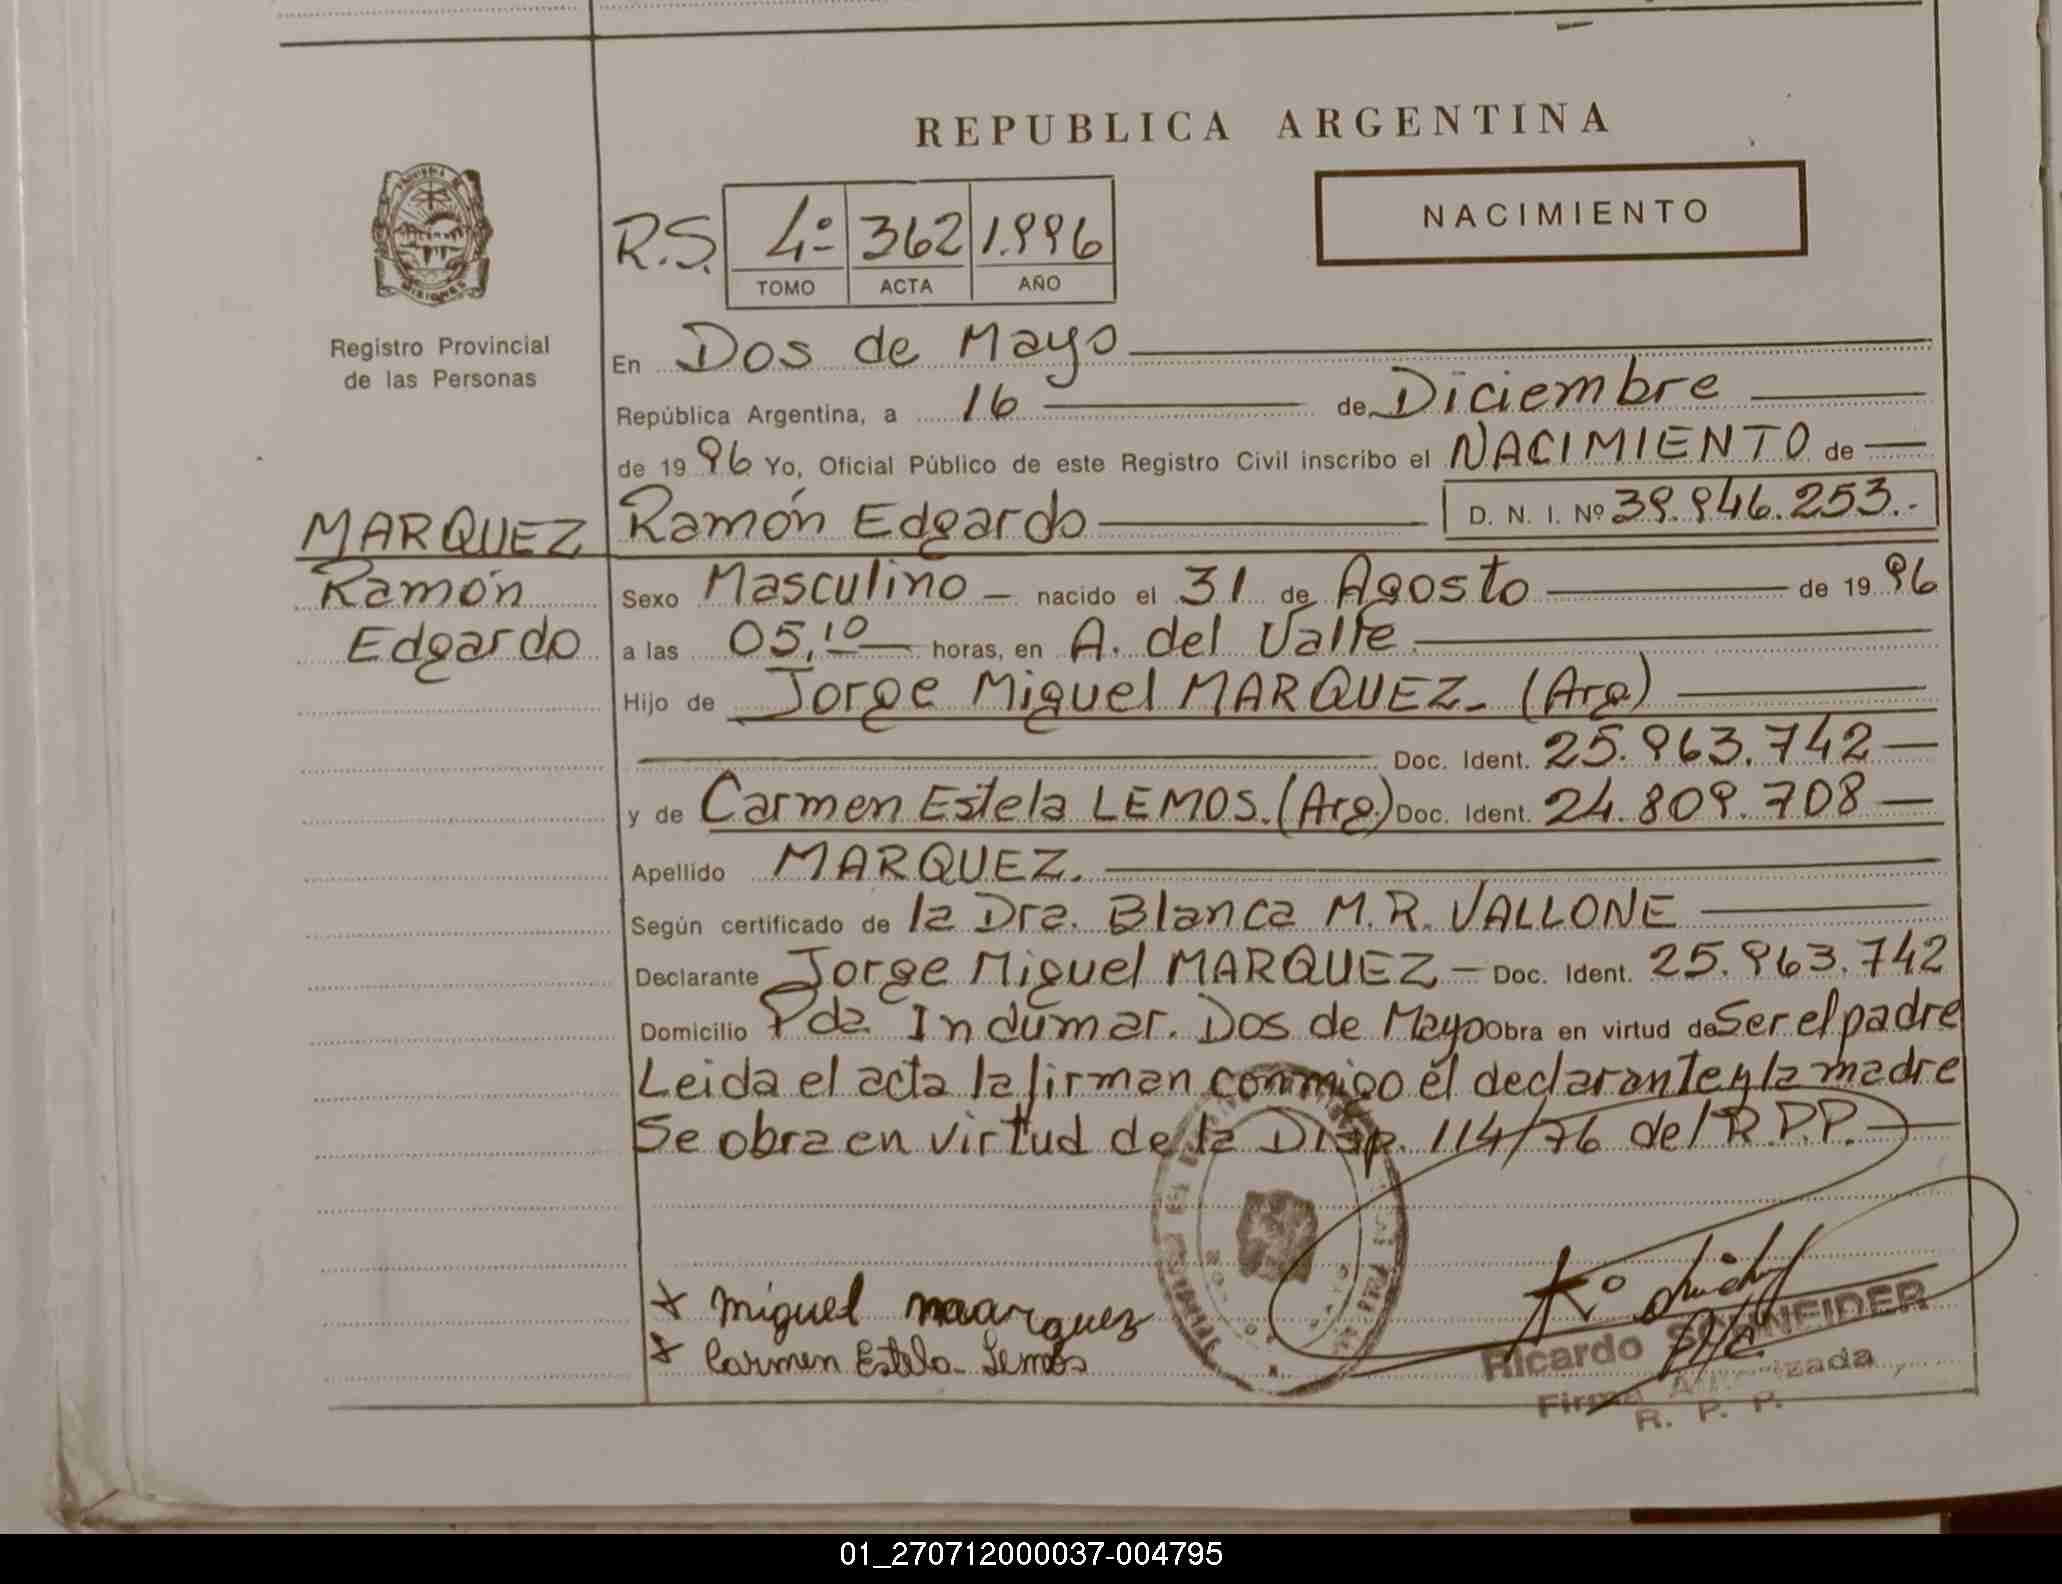 REPUBLICA ARGENTINA
NACIMIENTO
R.S. 4º 362 1.996
TOMO ACTA AÑO
Registro Provincial
de las Personas
En Dos de Mayo
República Argentina, a 16 de Diciembre
de 1996 Yo, Oficial Público de este Registro Civil inscribo el NACIMIENTO de
MARQUEZ
Ramón
Edgardo
Ramón Edgardo D. N. I. Nº 39.946.253.-
Sexo Masculino - nacido el 31 de Agosto de 1996
a las 05,10 horas, en A. del Valle
Hijo de Jorge Miguel MARQUEZ - (Arg)
Doc. Ident. 25.963.742
y de Carmen Estela LEMOS. (Arg.) Doc. Ident. 24.809.708
Apellido MARQUEZ.
Según certificado de la Dra. Blanca M.R. VALLONE
Declarante Jorge Miguel MARQUEZ - Doc. Ident. 25.963.742
Domicilio Pda. Indumar. Dos de Mayo Obra en virtud de Ser el padre
Leida el acta la firman conmigo el declarante y la madre
Se obra en virtud de la Disp. 114/76 del R.P.P.
x Miguel marquez
x Carmen Estela Lemos
Ricardo SCHNEIDER
Firma Autorizada
R. P. P.
01_270712000037-004795